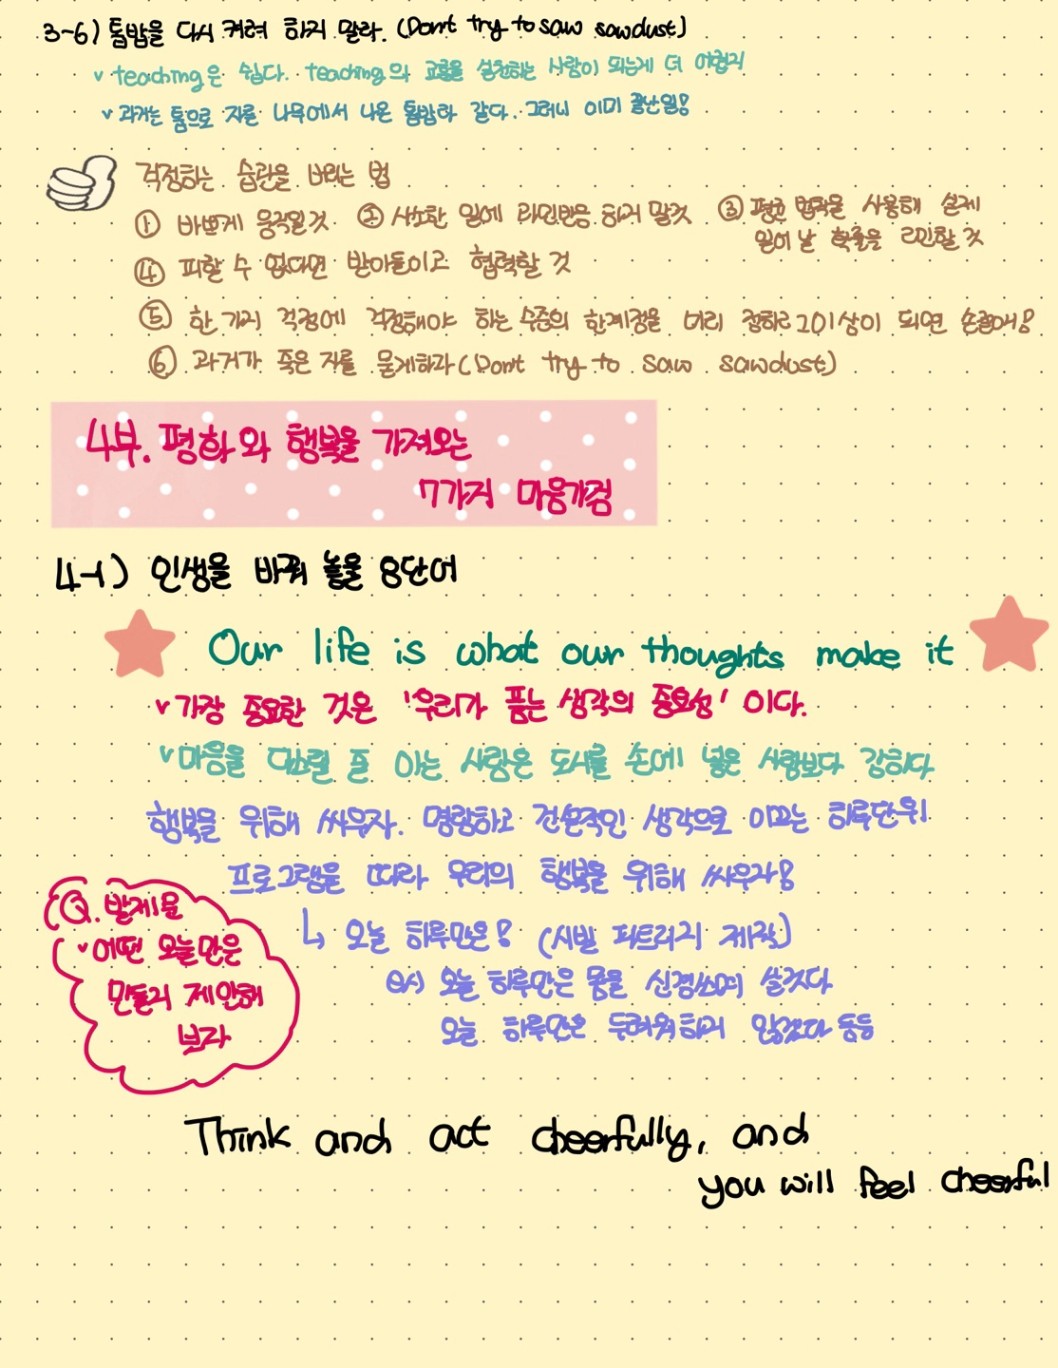 3-6) 톱밥을 다시 켜려 하지 말라. (Don't try to saw sawdust)
v teaching은 쉽다. teaching의 교훈을 실천하는 사람이 되는게 더 어렵지
v 과거는 톱으로 자를 나무에서 나온 톱밥과 같다. 그러니 이미 끝난일!
걱정하는 습관을 버리는 법
① 바쁘게 움직일것 ② 사소한 일에 과민반응 하지 말것 ③ 평균 법칙을 사용해 실제
일어날 확률을 확인할 것
④ 피할 수 없다면 받아들이고 협력할 것
⑤ 한 가지 걱정에 걱정해야 하는 수준의 한계점을 미리 정하고 그이상이 되면 손절해!
⑥ 과거가 죽은 자를 묻게하라 (Don't try to saw sawdust)
4부. 평화와 행복을 가져오는
7가지 마음가짐
4-1) 인생을 바꿔 놓을 8단어
Our life is what our thoughts make it
v 가장 중요한 것은 '우리가 품는 생각의 중요성' 이다.
v 마음을 다스릴 줄 아는 사람은 도시를 손에 넣은 사람보다 강하다
행복을 위해 싸우자. 명랑하고 건설적인 생각으로 이끄는 하루단위
프로그램을 따라 우리의 행복을 위해 싸우자!
Q. 발제문
v 어떤 오늘만은
만들지 제안해
보자
↳ 오늘 하루만은! (시빌 패트리지 제작)
ex) 오늘 하루만은 몸을 신경쓰며 살것다
오늘 하루만은 두려워하지 않겠다 등등
Think and act cheerfully, and
you will feel cheerful